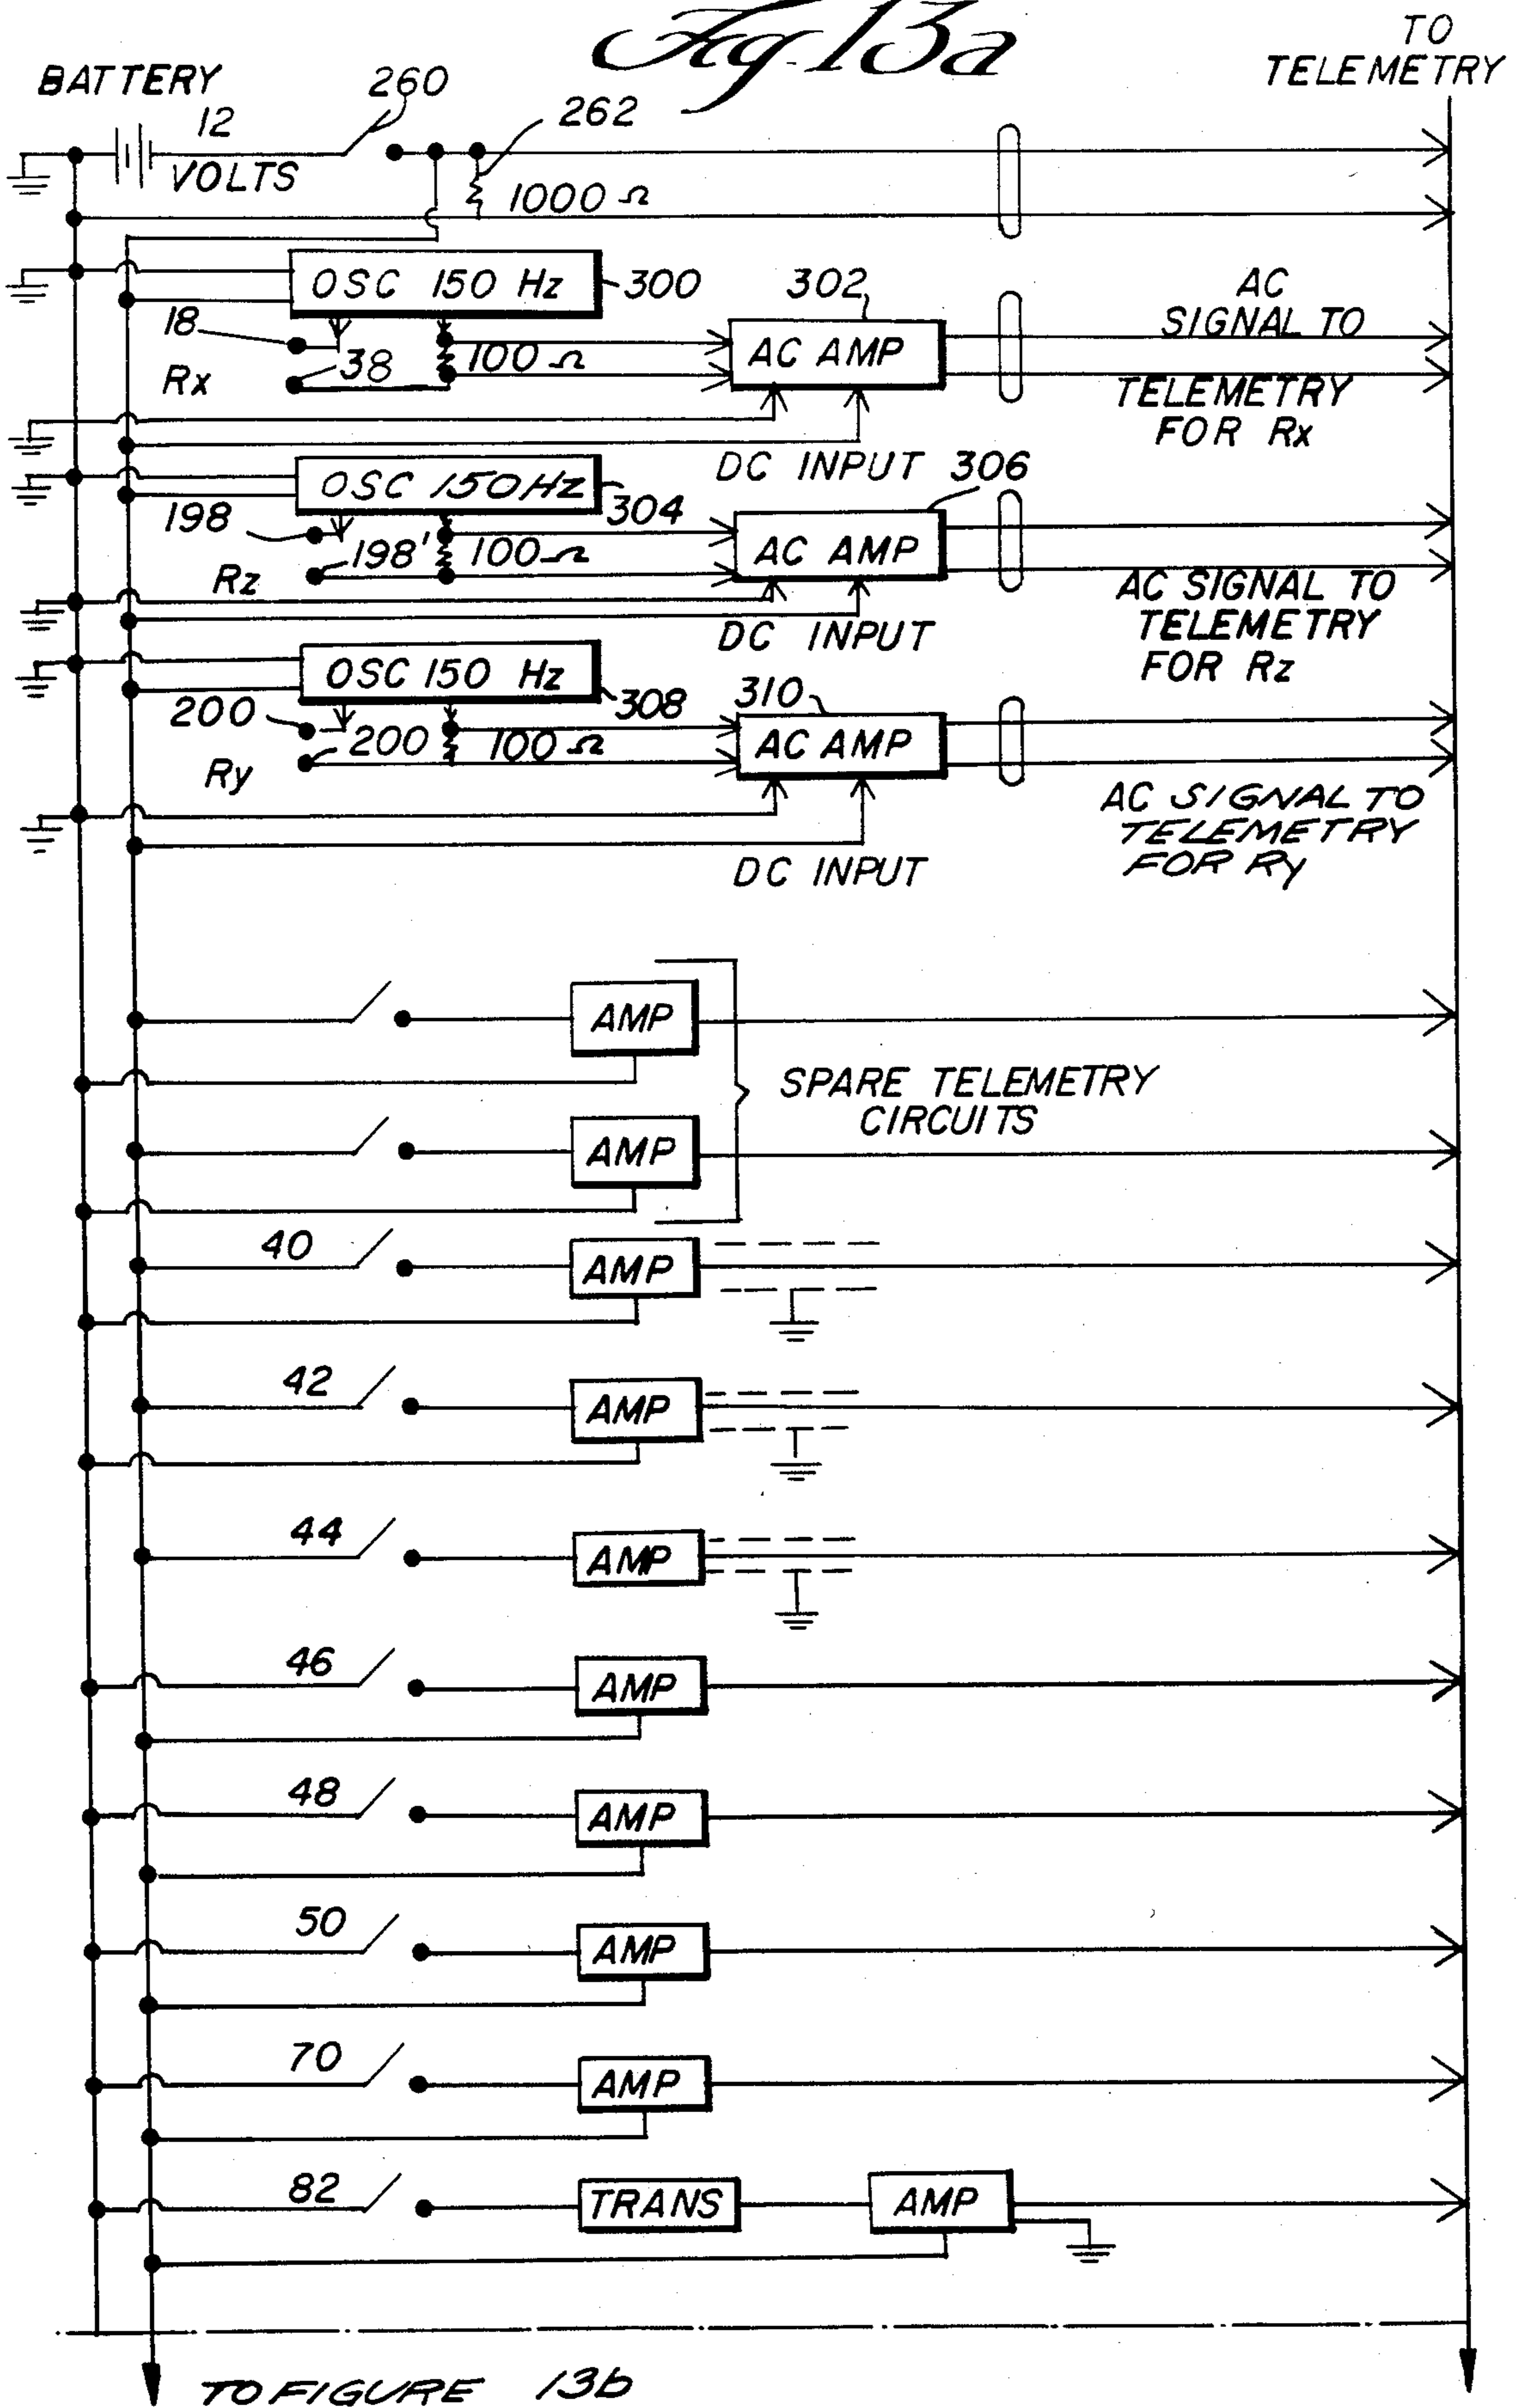 Fig 13a
TO
TELEMETRY
BATTERY
260
12
VOLTS
262
1000 Ω
OSC 150 Hz
300
302
AC
SIGNAL TO
TELEMETRY
FOR Rx
18
38
Rx
100 Ω
AC AMP
DC INPUT
OSC 150 Hz
304
306
198
198'
Rz
100 Ω
AC AMP
AC SIGNAL TO
TELEMETRY
FOR Rz
DC INPUT
OSC 150 Hz
308
310
200
200
Ry
100 Ω
AC AMP
AC SIGNAL TO
TELEMETRY
FOR Ry
DC INPUT
AMP
SPARE TELEMETRY
CIRCUITS
AMP
40
AMP
42
AMP
44
AMP
46
AMP
48
AMP
50
AMP
70
AMP
82
TRANS
AMP
TO FIGURE 13b